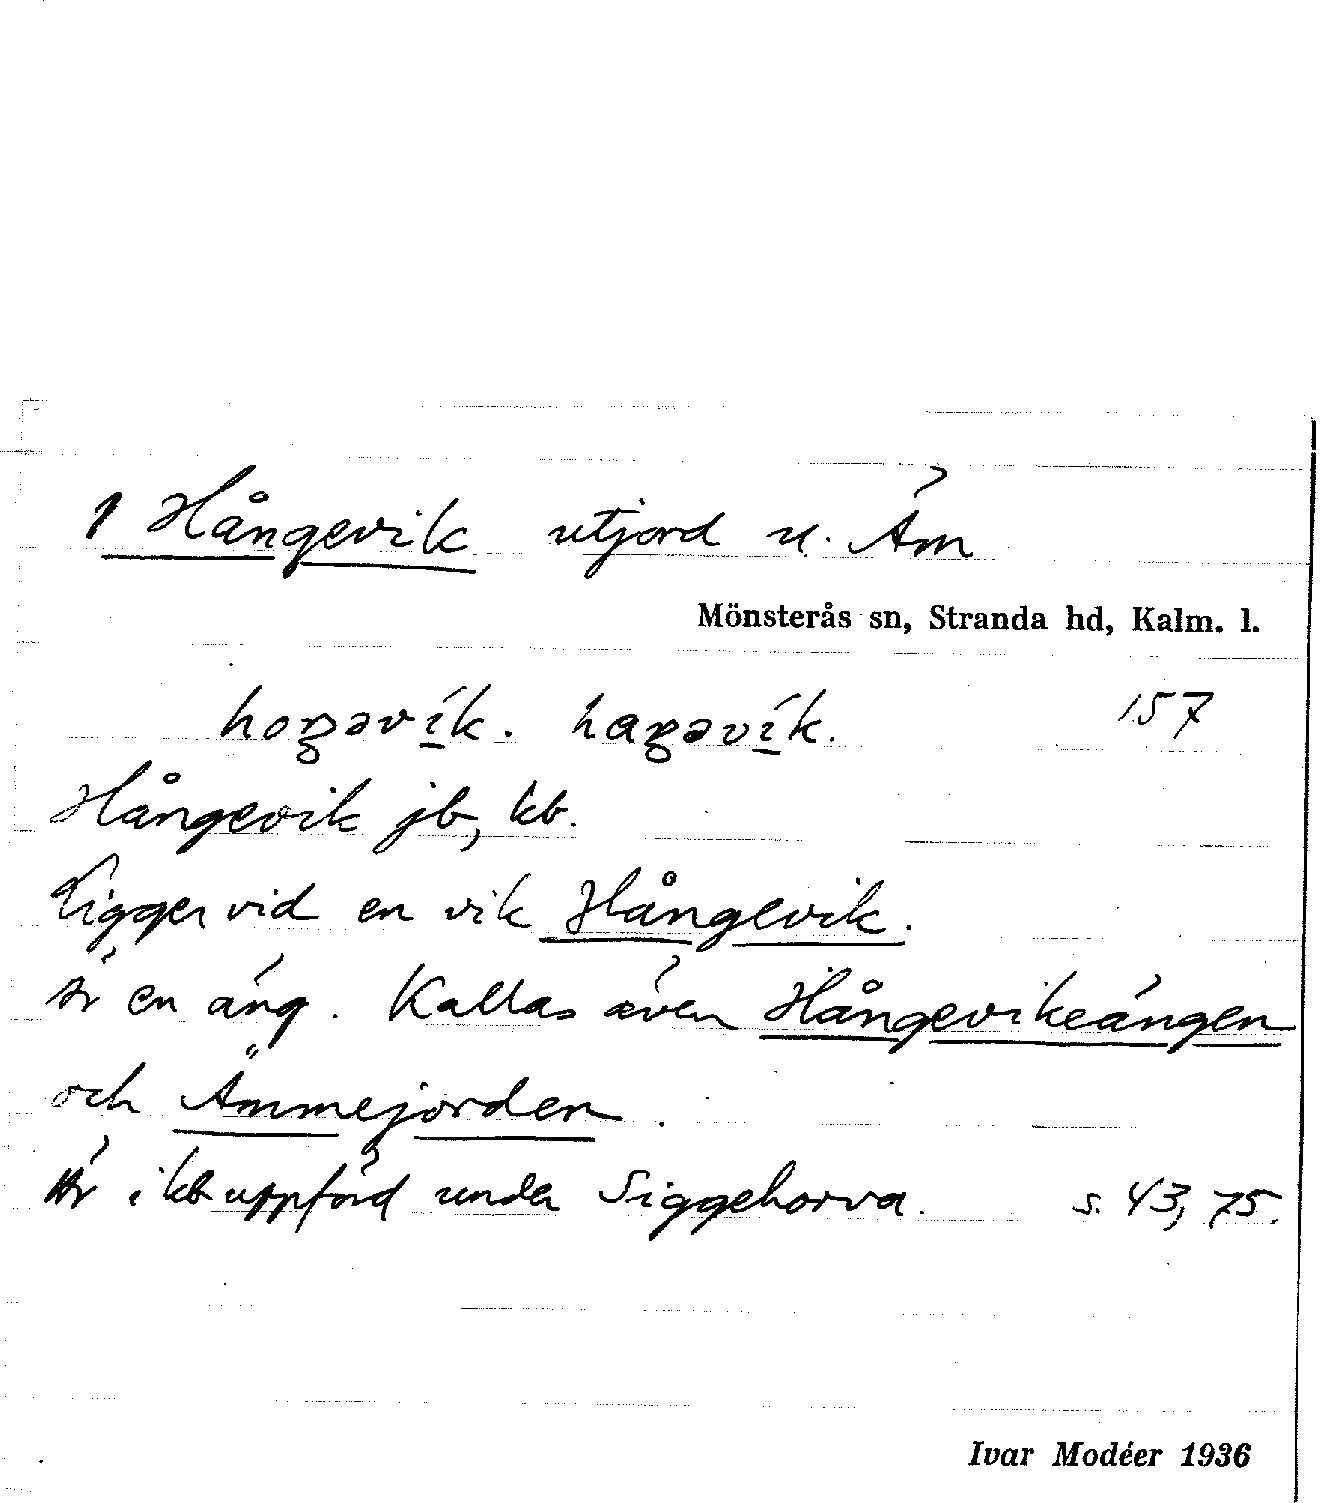 1 Hångevik utjord u. Äm
Mönsterås sn, Stranda hd, Kalm. l.
157
Hångevik jb, kb.
Ligger vid en vik Hångevik.
Är en äng. Kallas även Hångevikeängen
och Ämmejorden.
Är i kb uppförd under Siggehorva. s. 43, 75.
Ivar Modéer 1936